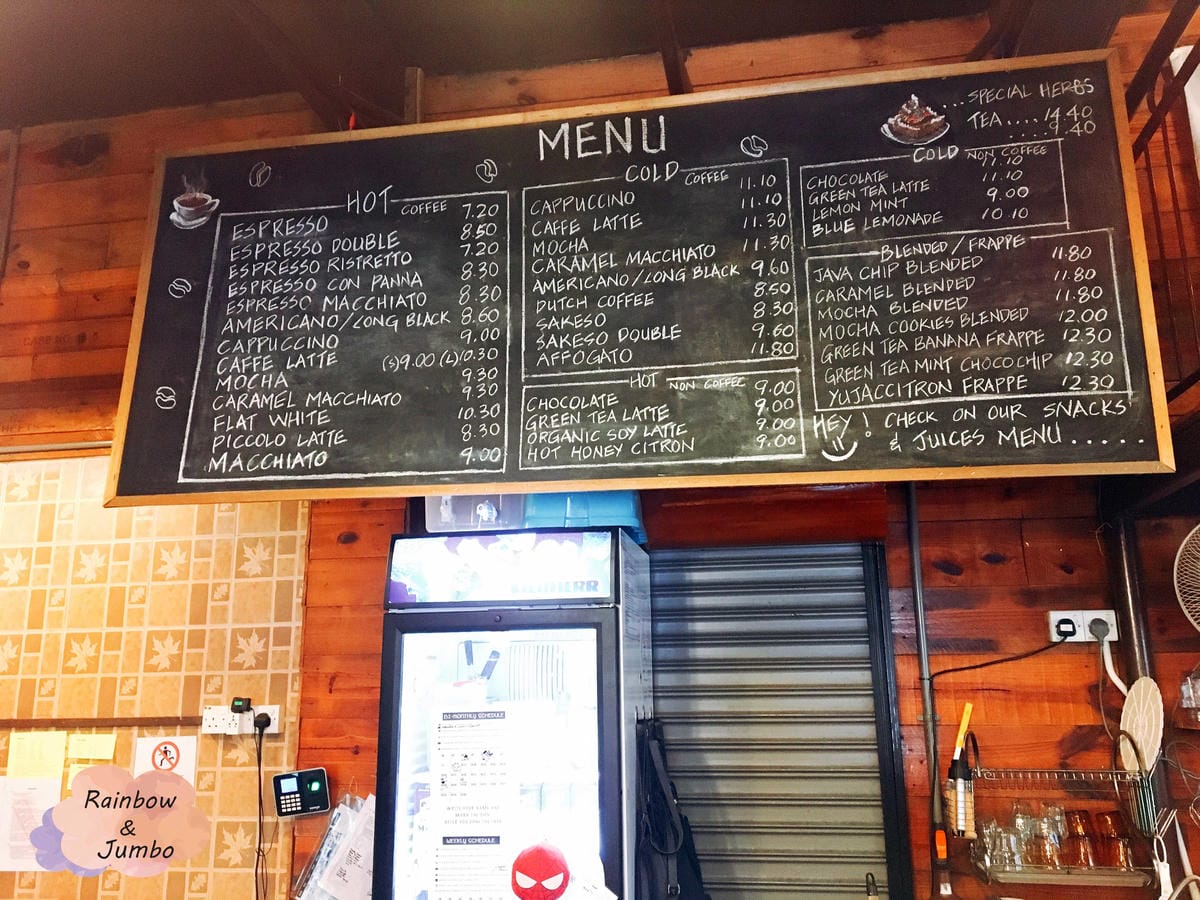 MENU
HOT COFFEE
ESPRESSO 7.20
ESPRESSO DOUBLE 8.50
ESPRESSO RISTRETTO 7.20
ESPRESSO CON PANNA 8.30
ESPRESSO MACCHIATO 8.30
AMERICANO/LONG BLACK 8.60
CAPPUCCINO 9.00
CAFFE LATTE (S)9.00 (L)10.30
MOCHA 9.30
CARAMEL MACCHIATO 9.30
FLAT WHITE 10.30
PICCOLO LATTE 8.30
MACCHIATO 9.00
COLD COFFEE
CAPPUCCINO 11.10
CAFFE LATTE 11.10
MOCHA 11.30
CARAMEL MACCHIATO 11.30
AMERICANO/LONG BLACK 9.60
DUTCH COFFEE 8.50
SAKESO 8.30
SAKESO DOUBLE 9.60
AFFOGATO 11.80
HOT NON COFFEE
CHOCOLATE 9.00
GREEN TEA LATTE 9.00
ORGANIC SOY LATTE 9.00
HOT HONEY CITRON 9.00
...SPECIAL HERBS
TEA....14.40
....9.40
COLD NON COFFEE
CHOCOLATE 11.10
GREEN TEA LATTE 11.10
LEMON MINT 9.00
BLUE LEMONADE 10.10
BLENDED/FRAPPE
JAVA CHIP BLENDED 11.80
CARAMEL BLENDED 11.80
MOCHA BLENDED 11.80
MOCHA COOKIES BLENDED 12.00
GREEN TEA BANANA FRAPPE 12.30
GREEN TEA MINT CHOCOCHIP 12.30
YUJACCITRON FRAPPE 12.30
HEY! CHECK ON OUR SNACKS
& JUICES MENU.....
LIEBHERR
BI-MONTHLY SCHEDULE
WEEKLY SCHEDULE
Rainbow
&
Jumbo